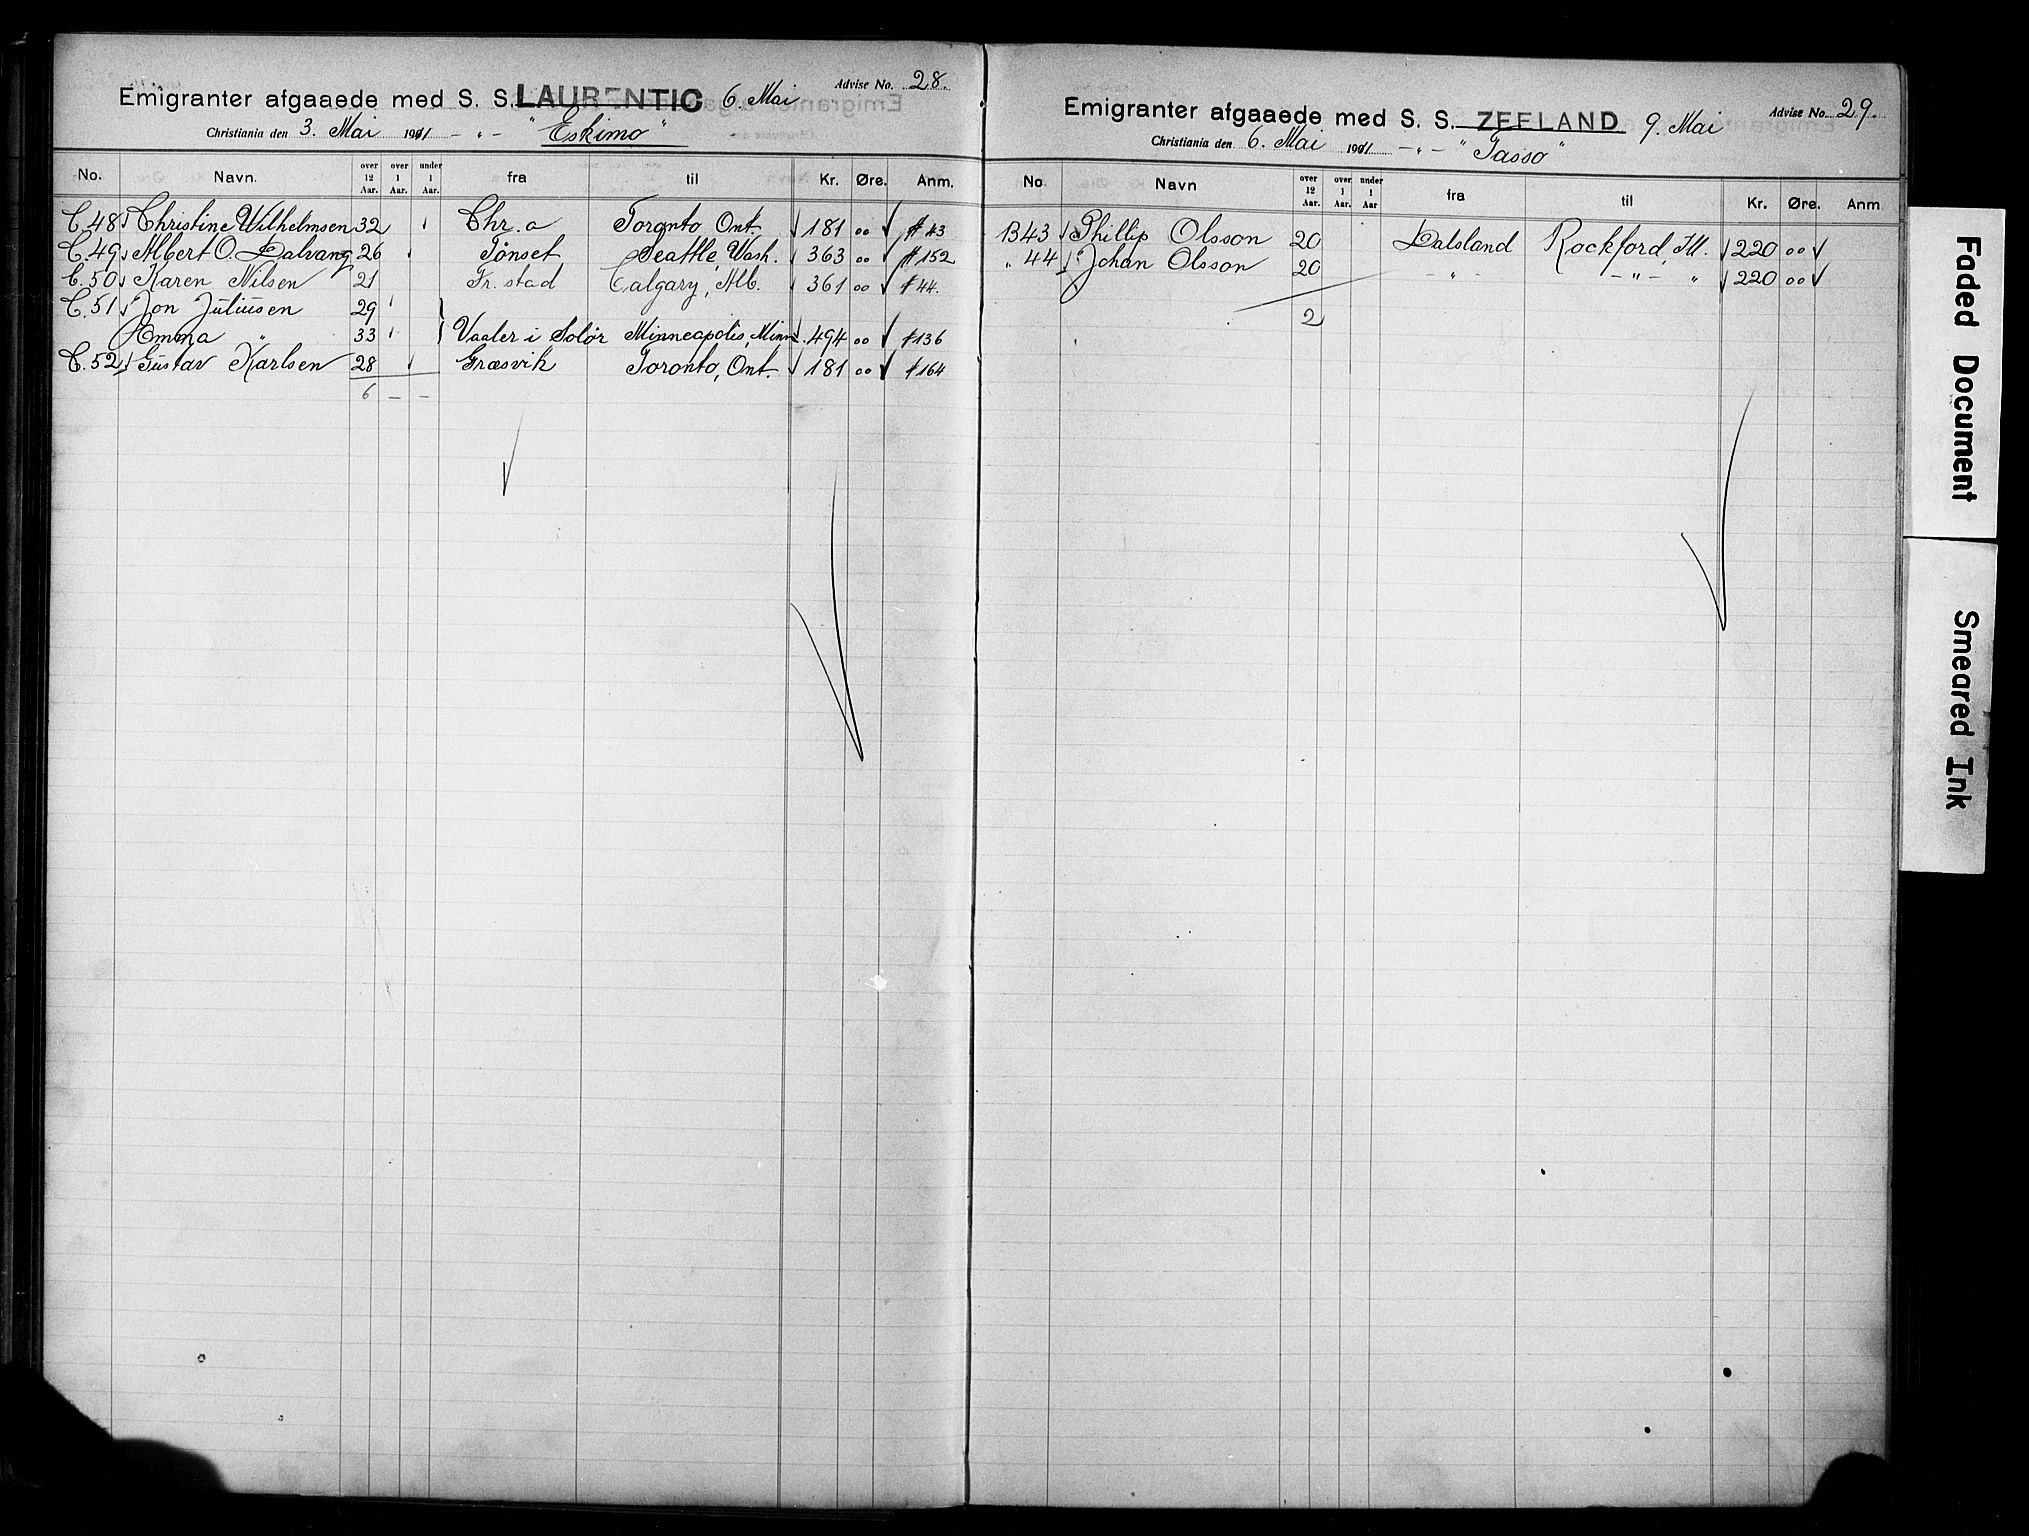 Advise No. 28.
Emigranter afgaaede med S. S. LAURENTIC 6. Mai
Christiania den 3. Mai 1911 - „ - "Eskimo"
No. Navn. over 12 Aar. over 1 Aar. under 1 Aar. fra til Kr. Øre. Anm.
C.48 Christine Wilhelmsen 32 Chr.a Toronto Ont. 181 00 # 43
C.49 Albert O. Dalvang 26 Tønset Seattle, Wash. 363 00 # 152
C.50 Karen Nilsen 21 Fr.stad Calgary, Alb. 361 00 # 44.
C.51 Jon Juliusen 29
Emma „ 33 } Vaaler i Solør Minneapolis, Minn. 494 00 # 136
C.52 Gustav Karlsen 28 Græsvik Toronto, Ont. 181 00 # 164
6 - -
Advise No. 29.
Emigranter afgaaede med S. S. ZEELAND 9. Mai
Christiania den 6. Mai 1911 - „ - "Tasso"
No Navn over 12 Aar. over 1 Aar. under 1 Aar fra til Kr. Øre. Anm
B43 Phillip Olsson 20 Dalsland Rockford, Ill. 220 00
„ 44 Johan Olsson 20 - „ - - „ - „ 220 00
2
Faded Document
Smeared Ink